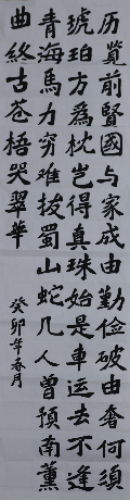 历览前賢國与家成由勤俭破由奢何须
琥珀方為枕岂得真珠始是車运去不逢
青海馬力穷难拔蜀山蛇几人曾預南薰
曲終古苍梧哭翠華
癸卯年春月